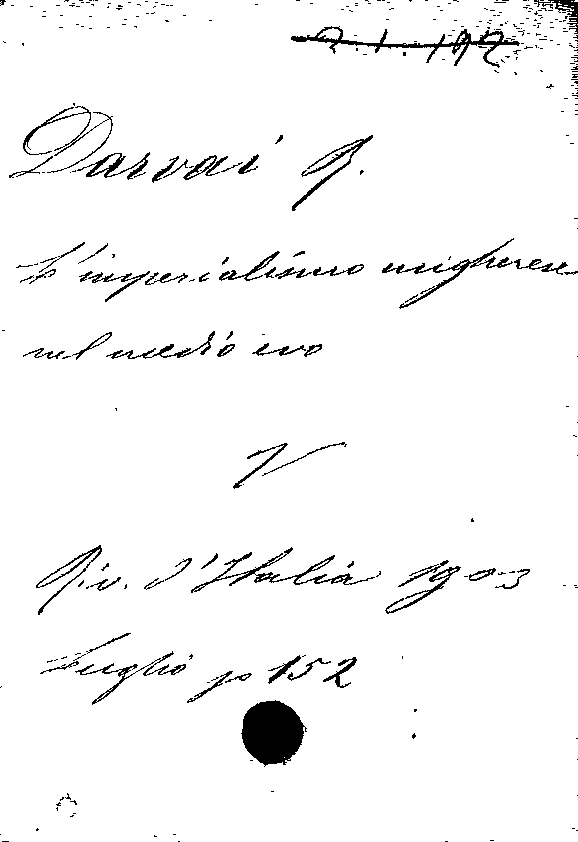 2.1.192
Darvai B.
L'imperialismo ungherese
nel medio evo
V
Riv. d'Italia 1903
Luglio p 152